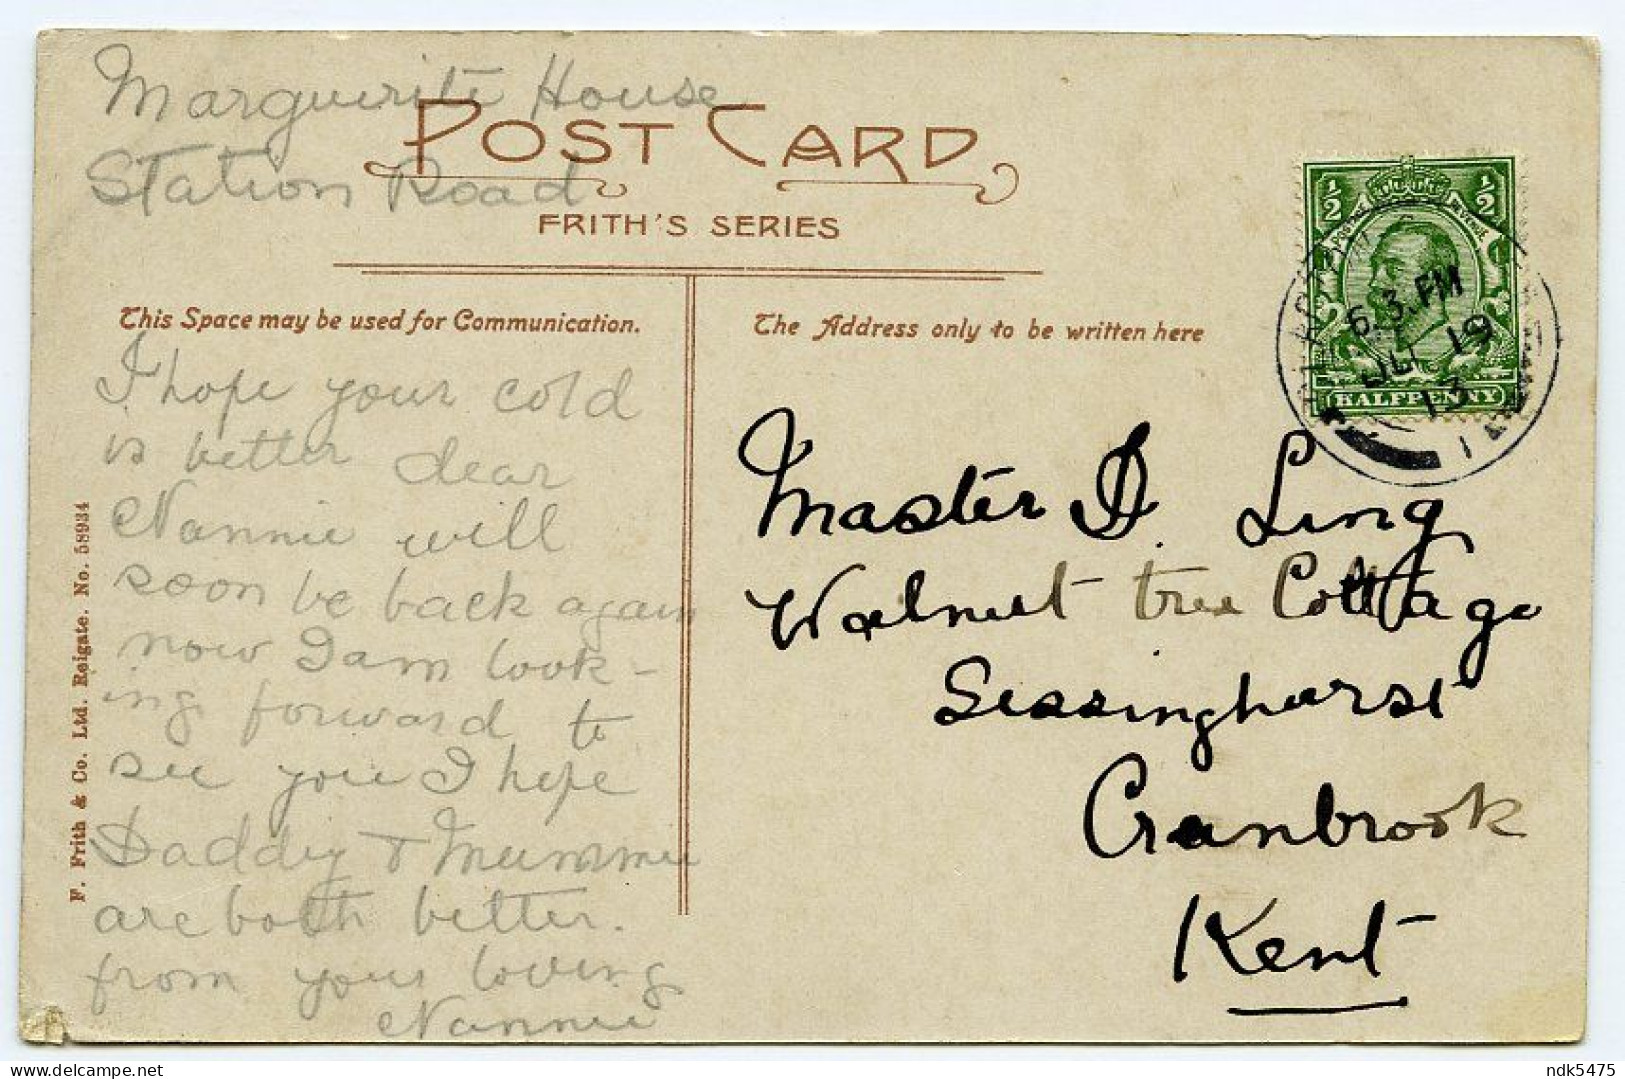 Marguerite House
Station Road
POST CARD
FRITH'S SERIES
This Space may be used for Communication.
The Address only to be written here
I hope your cold
is better dear
Nannie will
soon be back again
now I am look-
ing forward to
see you I hope
Daddy & Mummie
are both better.
from your loving
Nannie
F. Frith & Co. Ltd. Reigate. No. 58934
1/2 1/2
POSTAGE REVENUE
HALFPENNY
6.3.PM
JU 19
13
Master D. Ling
Walnut tree Cottage
Sissinghurst
Cranbrook
Kent
delcampe.net
ndk5475